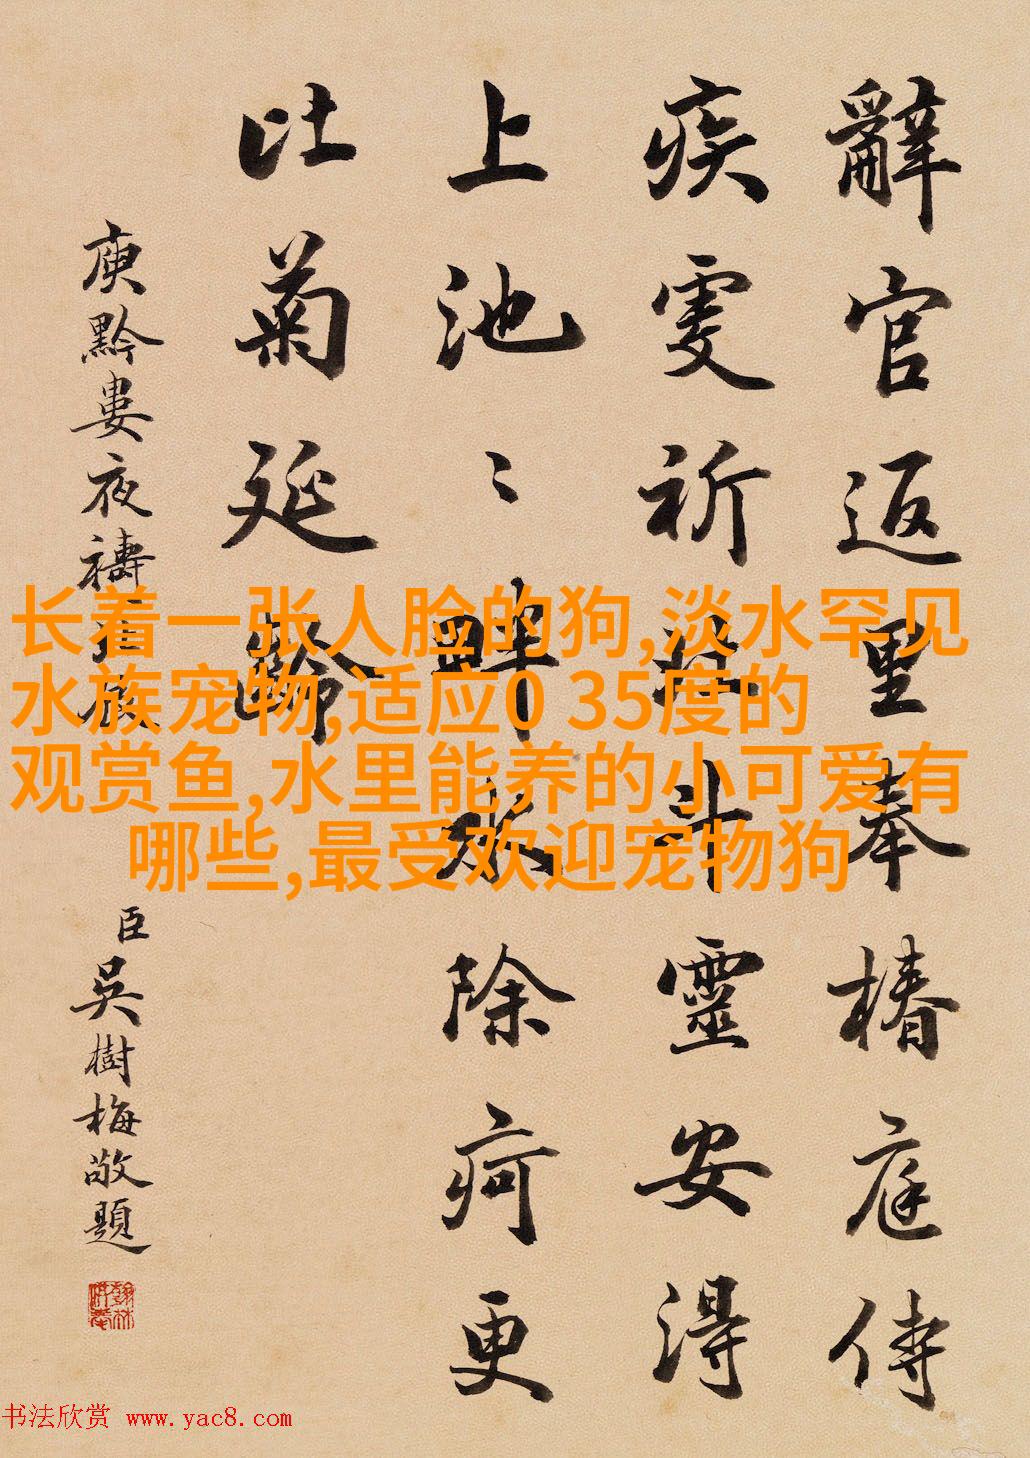 辭官返里奉椿庭侍
疾虔祈北斗靈安得
上池〻畔水除疴更
比菊延齡
庾黔婁夜禱
臣吳樹梅敬題
长着一张人脸的狗,淡水罕见
水族宠物,适应0 35度的
观赏鱼,水里能养的小可爱有
哪些,最受欢迎宠物狗
书法欣赏 www.yac8.com